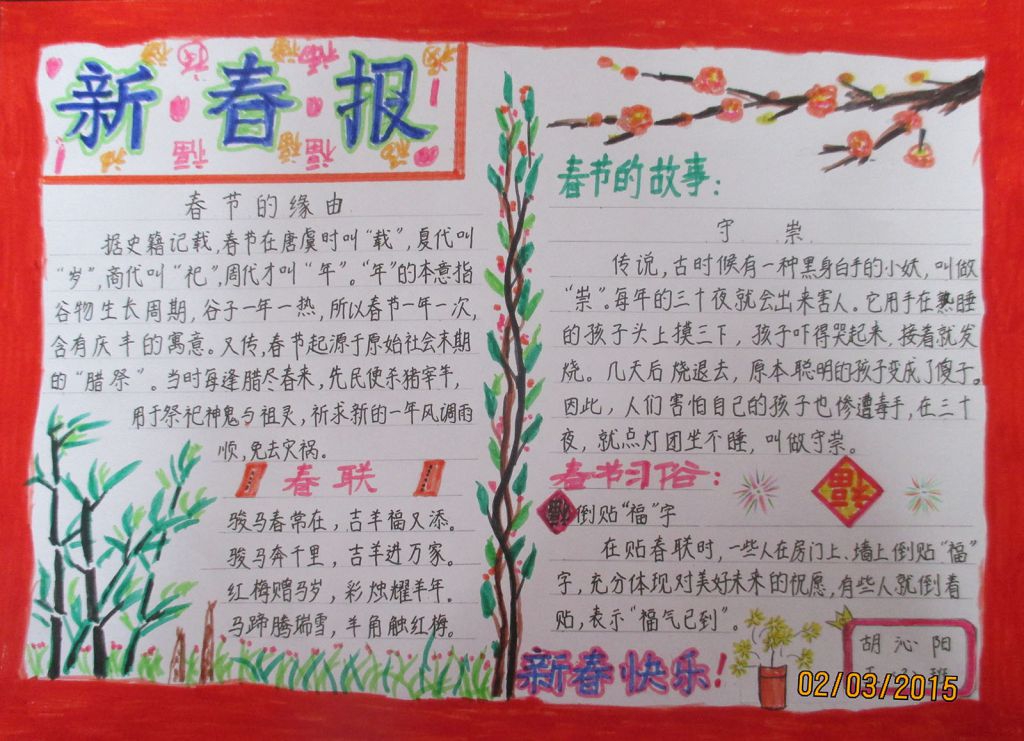 新春报
春节的缘由
据史籍记载,春节在唐虞时叫“载”,夏代叫
“岁”,商代叫“祀”,周代才叫“年”。“年”的本意指
谷物生长周期,谷子一年一热,所以春节一年一次,
含有庆丰的寓意。又传,春节起源于原始社会末期
的“腊祭”。当时每逢腊尽春来,先民便杀猪宰牛,
用于祭祀神鬼与祖灵,祈求新的一年风调雨
顺,免去灾祸。
春联
骏马春常在,吉羊福又添。
骏马奔千里,吉羊进万家。
红梅赠马岁,彩烛耀羊年。
马蹄腾瑞雪,羊角触红梅。
春节的故事:
守崇
传说,古时候有一种黑身白手的小妖,叫做
“崇”。每年的三十夜就会出来害人。它用手在熟睡
的孩子头上摸三下,孩子吓得哭起来,接着就发
烧。几天后烧退去,原本聪明的孩子变成了傻子。
因此,人们害怕自己的孩子也惨遭毒手,在三十
夜,就点灯团坐不睡,叫做守崇。
春节习俗:
福
倒贴“福”字
在贴春联时,一些人在房门上、墙上倒贴“福”
字,充分体现对美好未来的祝愿,有些人就倒着
贴,表示“福气已到”。
新春快乐!
胡沁阳
02/03/2015